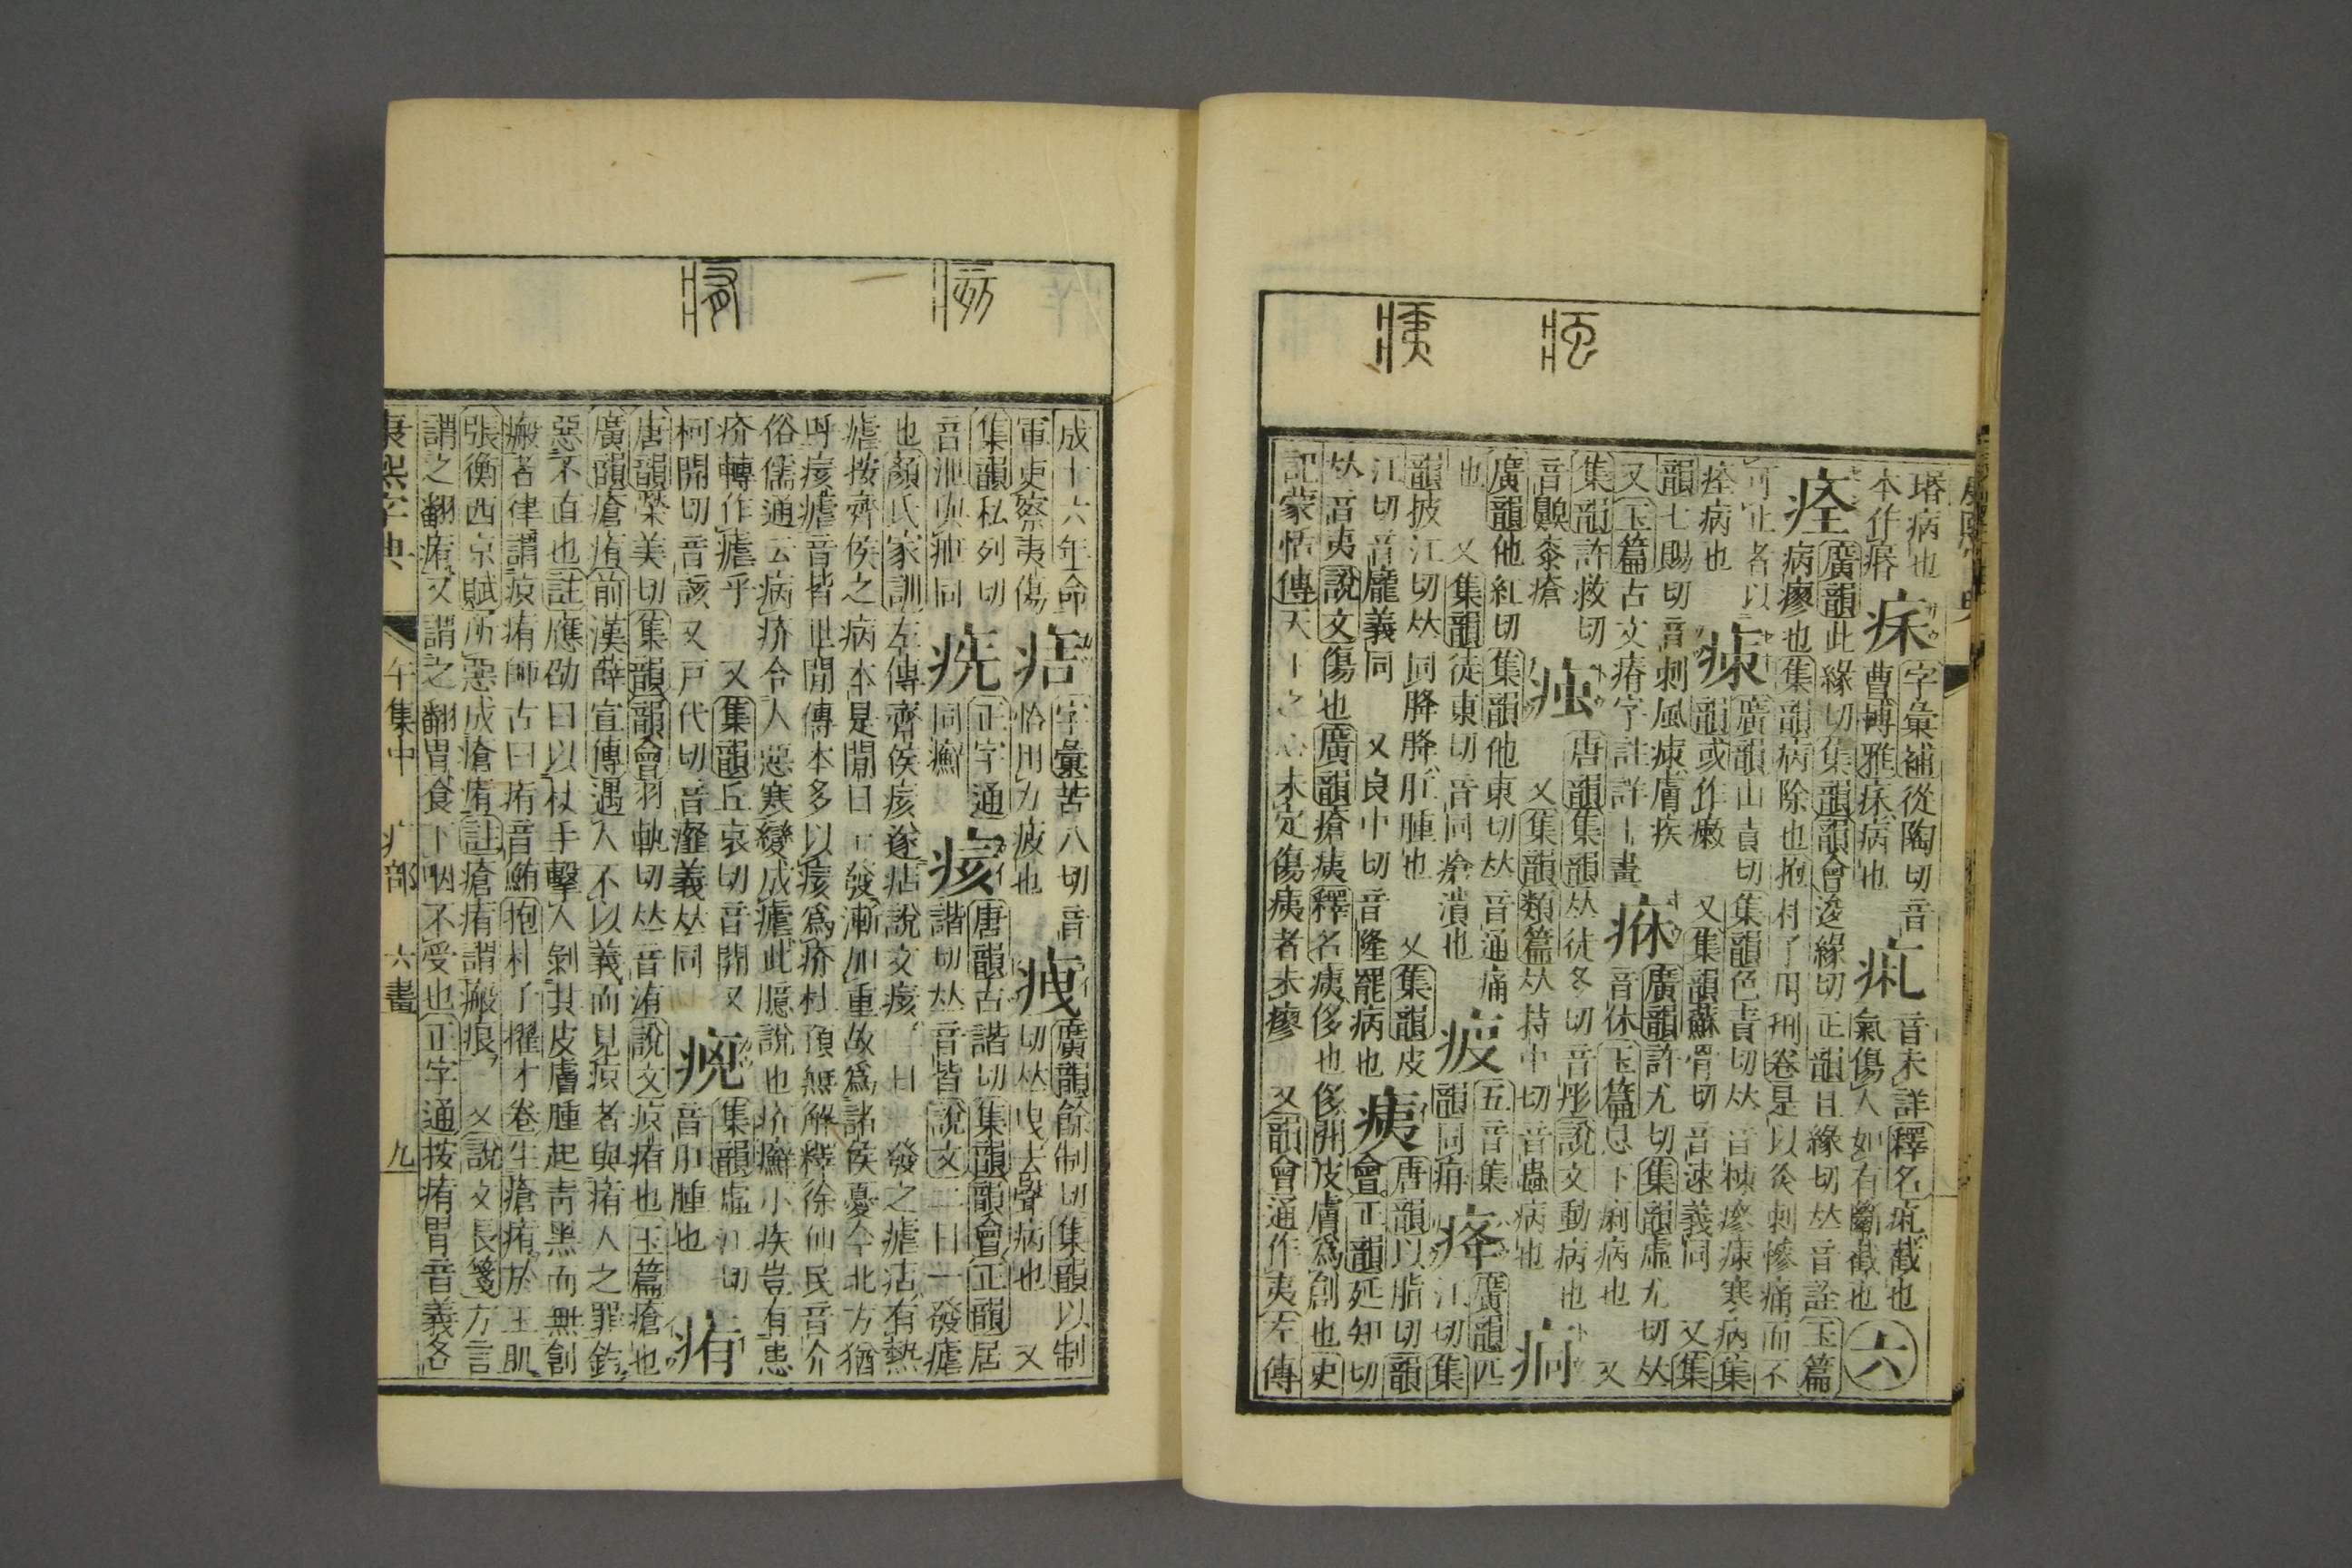 塔病也
本作瘩
字彙補從陶切音
曹博雅病也
音未詳釋名截也
氣傷人如有斷截也
六
痊
廣韻此緣切集韻韻會逡緣切正韻且緣切𠀤音詮玉篇
病瘳也集韻病除也抱朴子用刑卷是以灸刺慘痛而不
可止者以
痊病也
廣韻山責切集韻色責切𠀤音棟瘮寒病集
韻或作 又集韻蘇骨切音速義同 又集
韻七賜切音刺風膚疾
又玉篇古文瘠字註詳十畫
廣韻許尤切集韻虛尤切𠀤
音休玉篇息下痢病也 又
集韻許救切
音齅桼瘡
痋
唐韻集韻𠀤徒冬切音彤說文動病也
又集韻類篇𠀤持中切音蟲病也
痌
廣韻他紅切集韻他東切𠀤音通痛
也 又集韻徒東切音同瘡潰也
五音集
韻同
廣韻匹江切集
韻披江切𠀤同胮胮肛腫也 又集韻皮
江切音龐義同 又良中切音隆罷病也
痍
唐韻以脂切韻
會正韻延知切
𠀤音夷說文傷也廣韻瘡痍釋名痍侈也侈開皮膚爲創也史
記蒙恬傳天下之心未定傷痍者未瘳 又韻會通作夷左傳
成十六年命
軍吏察夷傷
字彙苦八切音
恰用力疲也
廣韻餘制切集韻以制
切𠀤曳去聲病也 又
集韻私列切
音泄與同
正字通
同癬
痎
唐韻古諧切集韻韻會正韻居
諧切𠀤音皆說文二日一發瘧
也顏氏家訓左傳齊侯痎遂痁說文痎二日一發之瘧痁有熱
瘧按齊侯之病本是閒日一發漸加重故爲諸侯憂今北方猶
呼痎瘧音皆世閒傳本多以痎爲疥杜預無解釋徐仙民音介
俗儒通云病疥令人惡寒變成瘧此臆說也疥癬小疾豈有患
疥轉作瘧乎 又集韻丘哀切音開 又
柯開切音該又戸代切音瀣義𠀤同
集韻虛江切
音肛腫也
痏
唐韻榮美切集韻韻會羽軌切𠀤音洧說文疻痏也玉篇瘡也
廣韻瘡痏前漢薛宣傳遇人不以義而見疻者與痏人之罪鈞
惡不直也註應劭曰以杖手擊人剝其皮膚腫起靑黑而無創
瘢者律謂疻痏師古曰痏音鮪抱朴子擢才卷生瘡痏於玉肌
張衡西京賦所惡成瘡痏註瘡痏謂瘢痕 又說文長箋方言
謂之翻痏又謂之翻胃食下咽不受也正字通按痏胃音義各
康熙字典 午集中 疒部 六畫 九